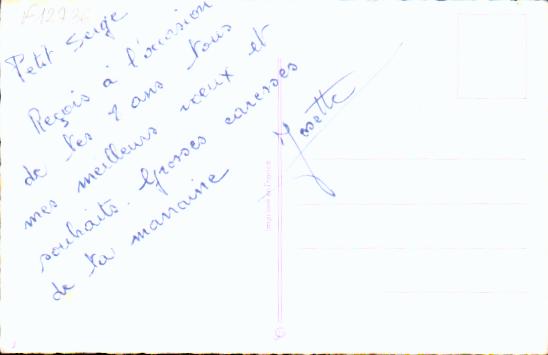 Petit Serge
Reçois à l'occasion
de tes 7 ans tous
mes meilleurs vœux et
souhaits. Grosses caresses
de ta marraine
Josette